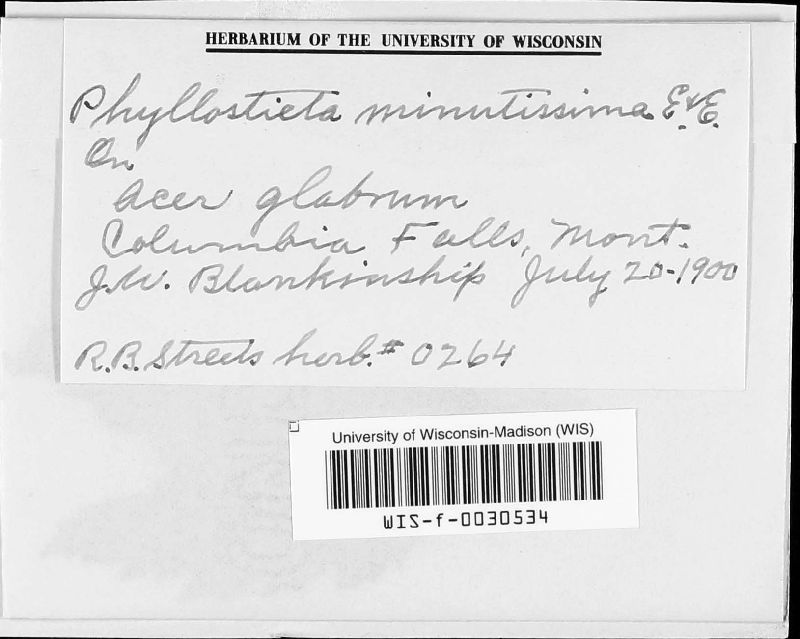 HERBARIUM OF THE UNIVERSITY OF WISCONSIN
Phyllosticta minutissima E.&E.
On
Acer glabrum
Columbia Falls, Mont.
J.W. Blankinship July 20-1900
R.B. Streets herb.# 0264
University of Wisconsin-Madison (WIS)
WIS-f-0030534